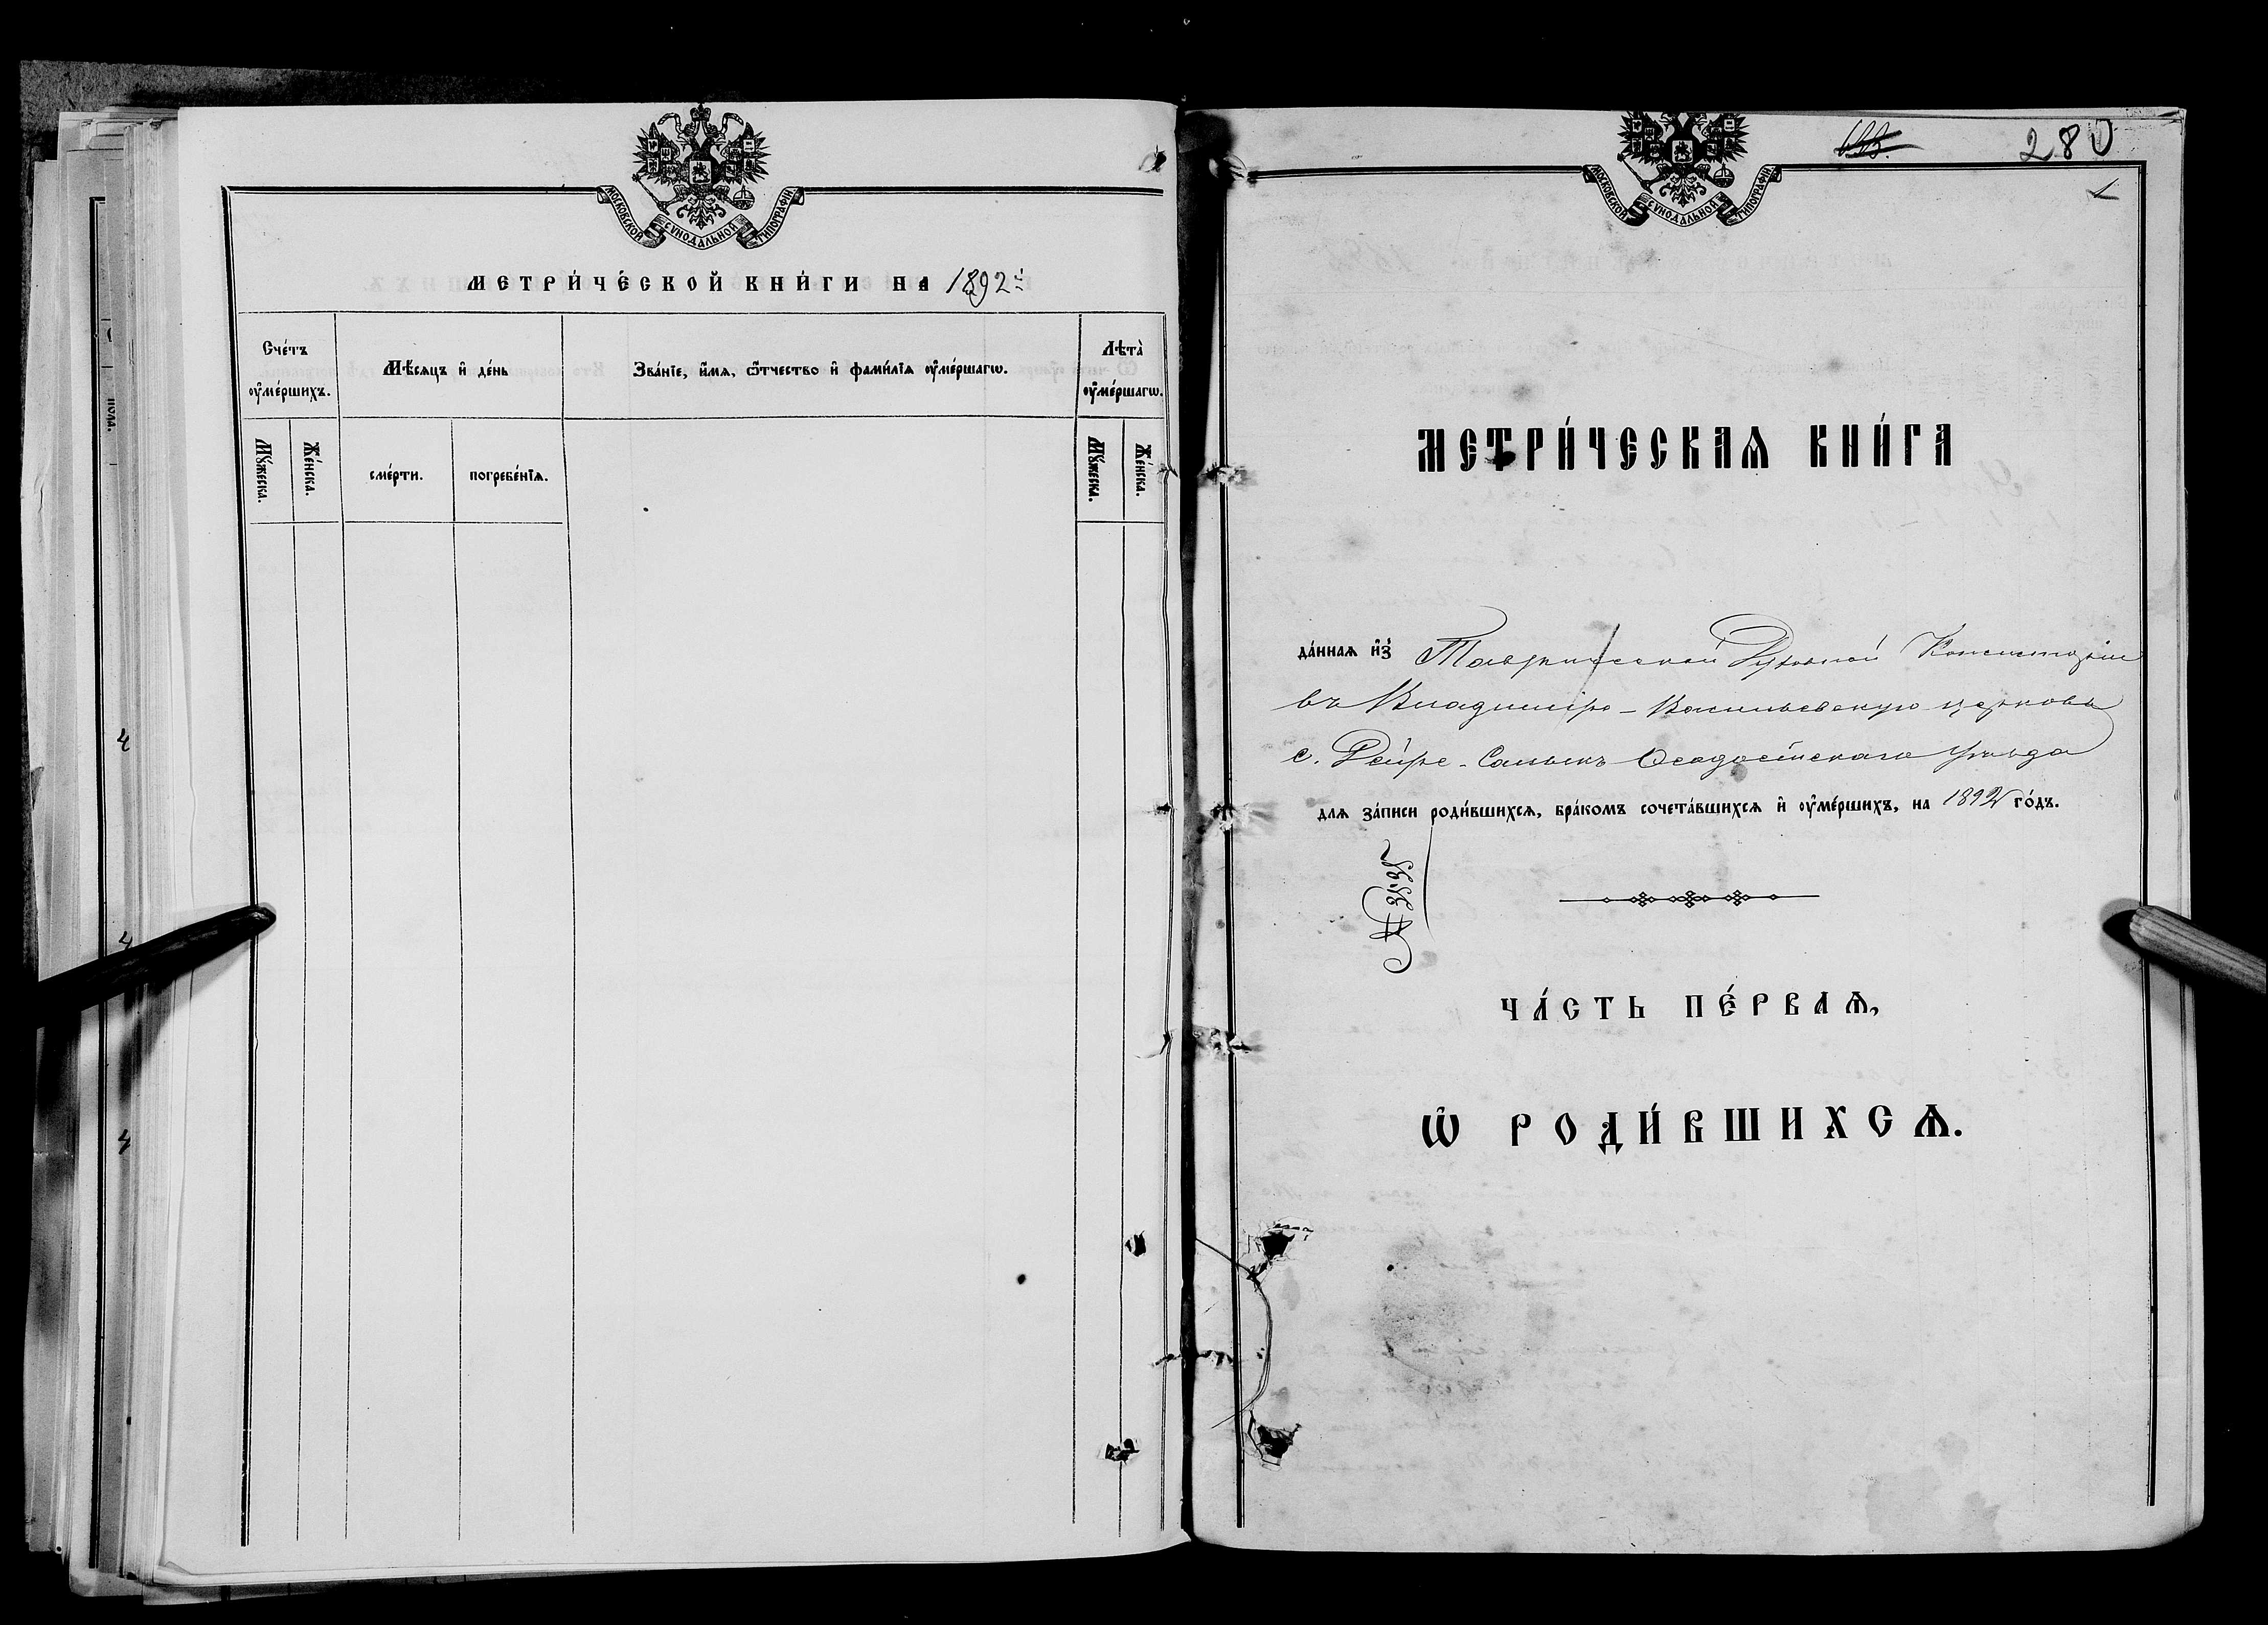 МОСКОВСКОЙ СѴНОДАЛЬНОЙ ТИПОГРАФІИ
МЕТРИ́ЧЕСКОЙ КНИ́ГИ НА 1892
Сче́тъ ᲂу҆ме́ршихъ.
Мѣ́сяцъ и҆ де́нь
Зва́нїе, и҆́мѧ, ѻ҆́тчество и҆ фами́лїѧ ᲂу҆ме́ршагѡ.
Лѣта̀ ᲂу҆ме́ршагѡ.
Мꙋ́жеска.
Же́нска.
сме́рти.
погребе́нїѧ.
Мꙋ́жеска.
Же́нска.
280
МОСКОВСКОЙ СѴНОДАЛЬНОЙ ТИПОГРАФІИ
МЕТРИ́ЧЕСКАѦ КНИ́ГА
да́ннаѧ и҆з̾ Таврической Духовной Консисторіи
въ Владиміро-Васильевскую церковь
с. Дейре-Салынъ Ѳеодосійскаго уѣзда
длѧ за́писи роди́вшихсѧ, бра́комъ сочета́вшихсѧ и҆ ᲂу҆ме́ршихъ, на 1892 го́дъ.
ЧА́СТЬ ПЕ́РВАѦ,
Ѡ҆ РОДИ́ВШИХСѦ.